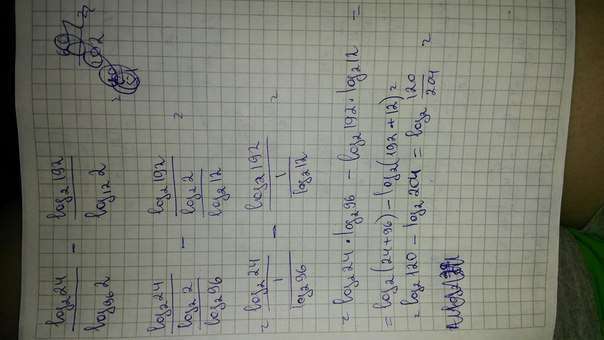 log₂24 / log₉₆2 − log₂192 / log₁₂2
log₂24 / (log₂2 / log₂96) − log₂192 / (log₂2 / log₂12) =
= log₂24 / (1 / log₂96) − log₂192 / (1 / log₂12) =
= log₂24 · log₂96 − log₂192 · log₂12 =
= log₂(24+96) − log₂(192+12) =
= log₂120 − log₂204 = log₂ 120/204 =